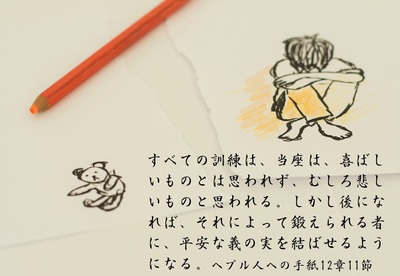 すべての訓練は、当座は、喜ばし
いものとは思われず、むしろ悲し
いものと思われる。しかし後にな
れば、それによって鍛えられる者
に、平安な義の実を結ばせるよう
になる。ヘブル人への手紙12章11節